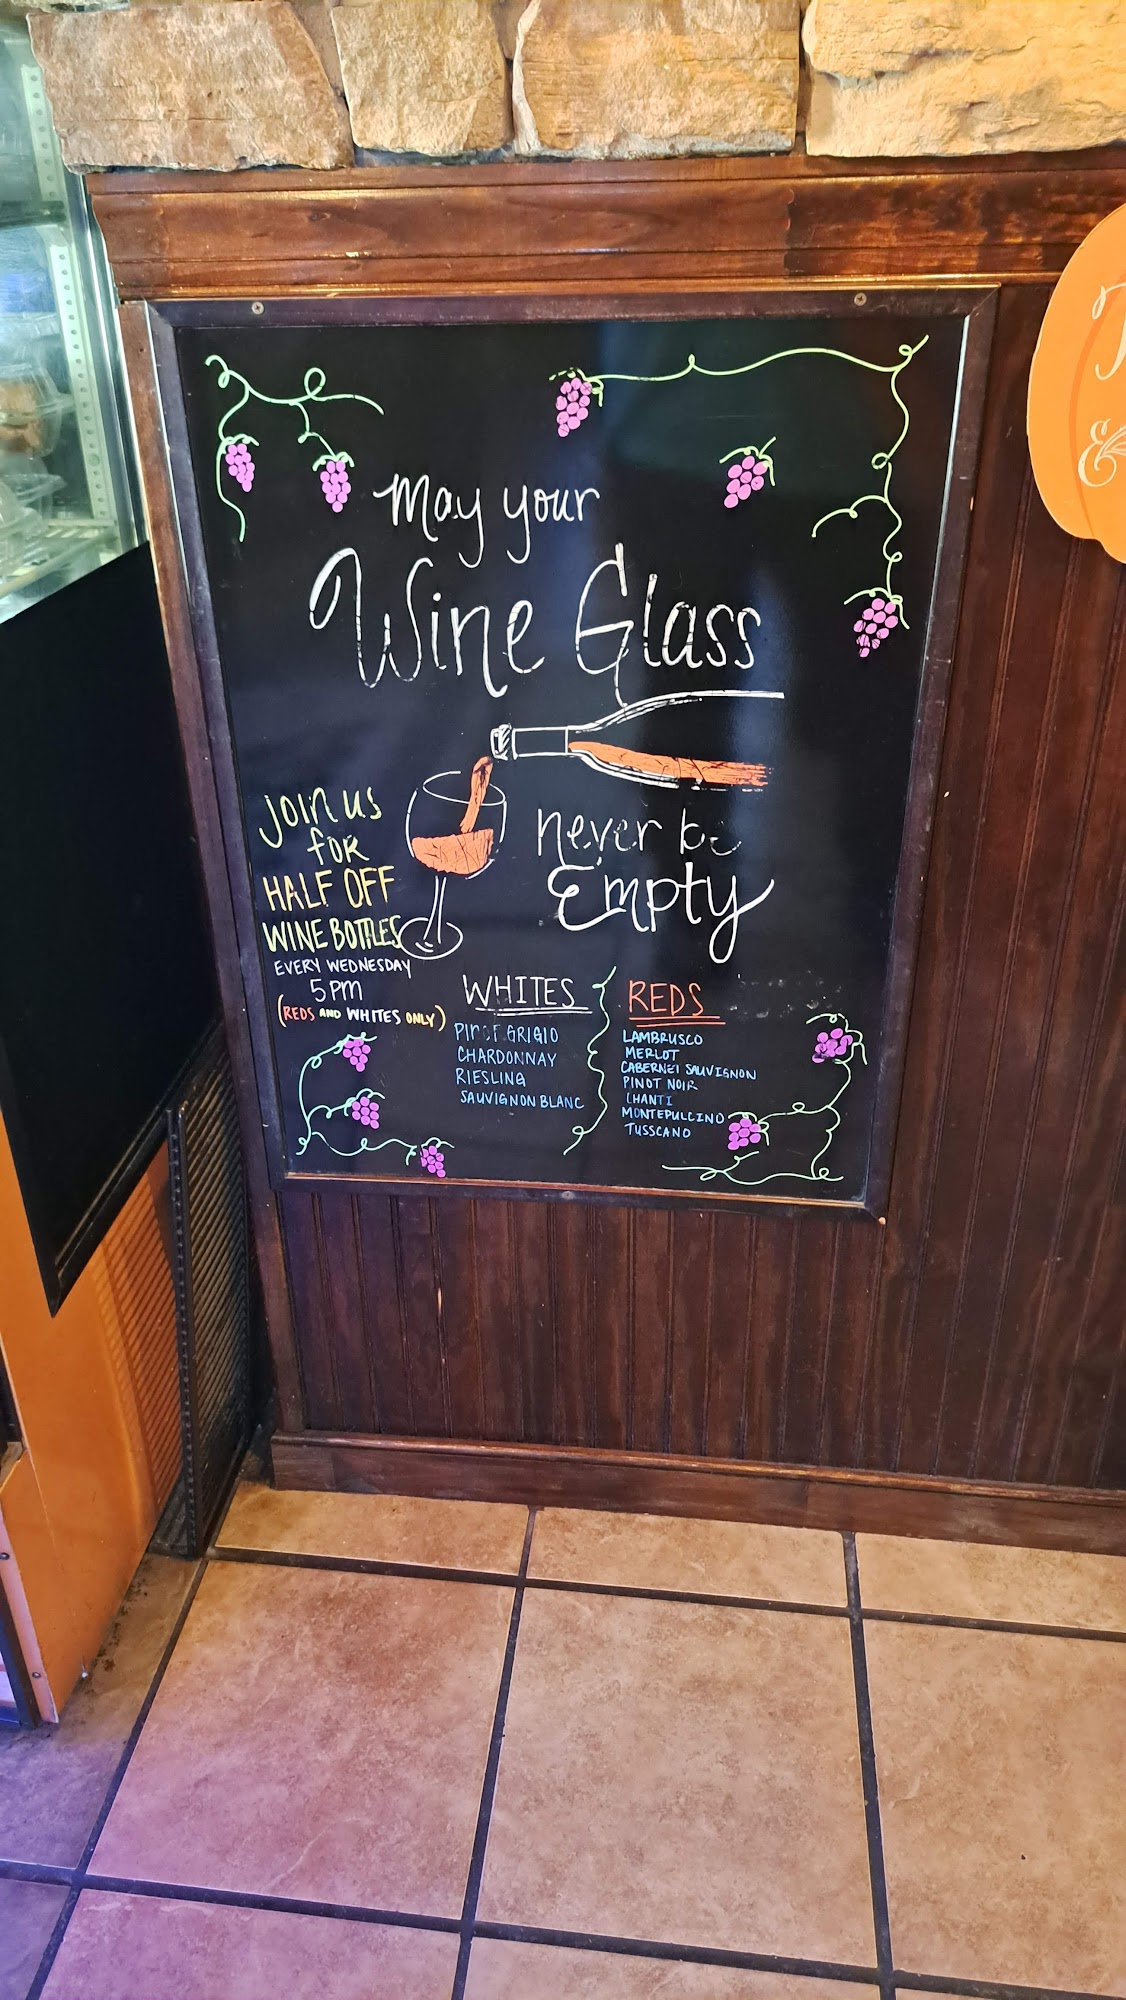 May your
Wine Glass
never be
Empty
JOIN US
FOR
HALF OFF
WINE BOTTLES
EVERY WEDNESDAY
5 PM
(REDS AND WHITES ONLY)
WHITES
PINOT GRIGIO
CHARDONNAY
RIESLING
SAUVIGNON BLANC
REDS
LAMBRUSCO
MERLOT
CABERNET SAUVIGNON
PINOT NOIR
CHANTI
MONTEPULCINO
TUSSCANO
&